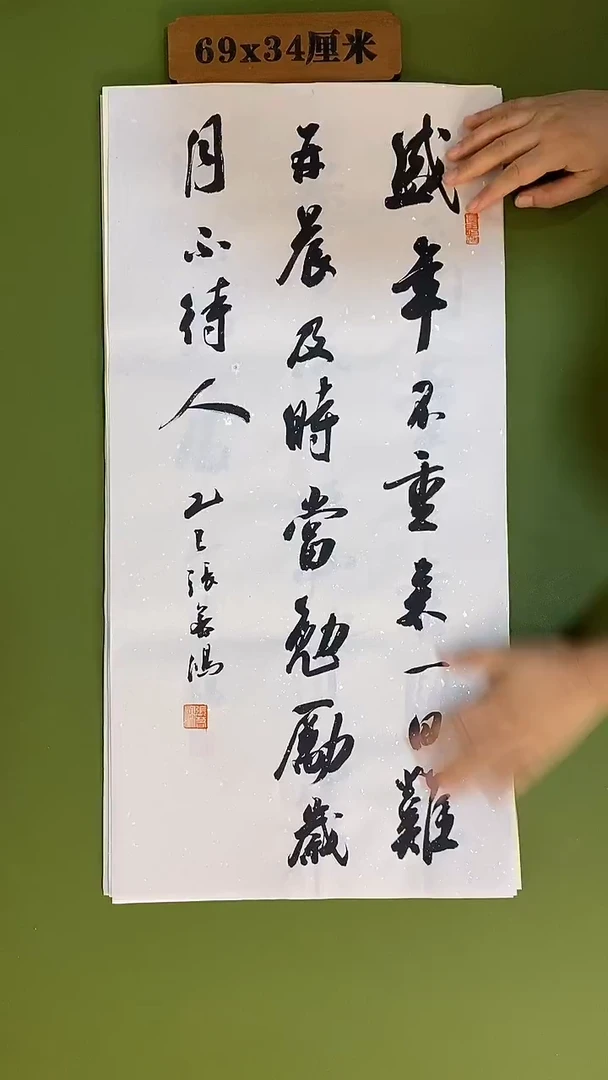 69x34厘米
盛年不重来一日難
再晨及時當勉勵歲
月不待人
乙巳張善鴻